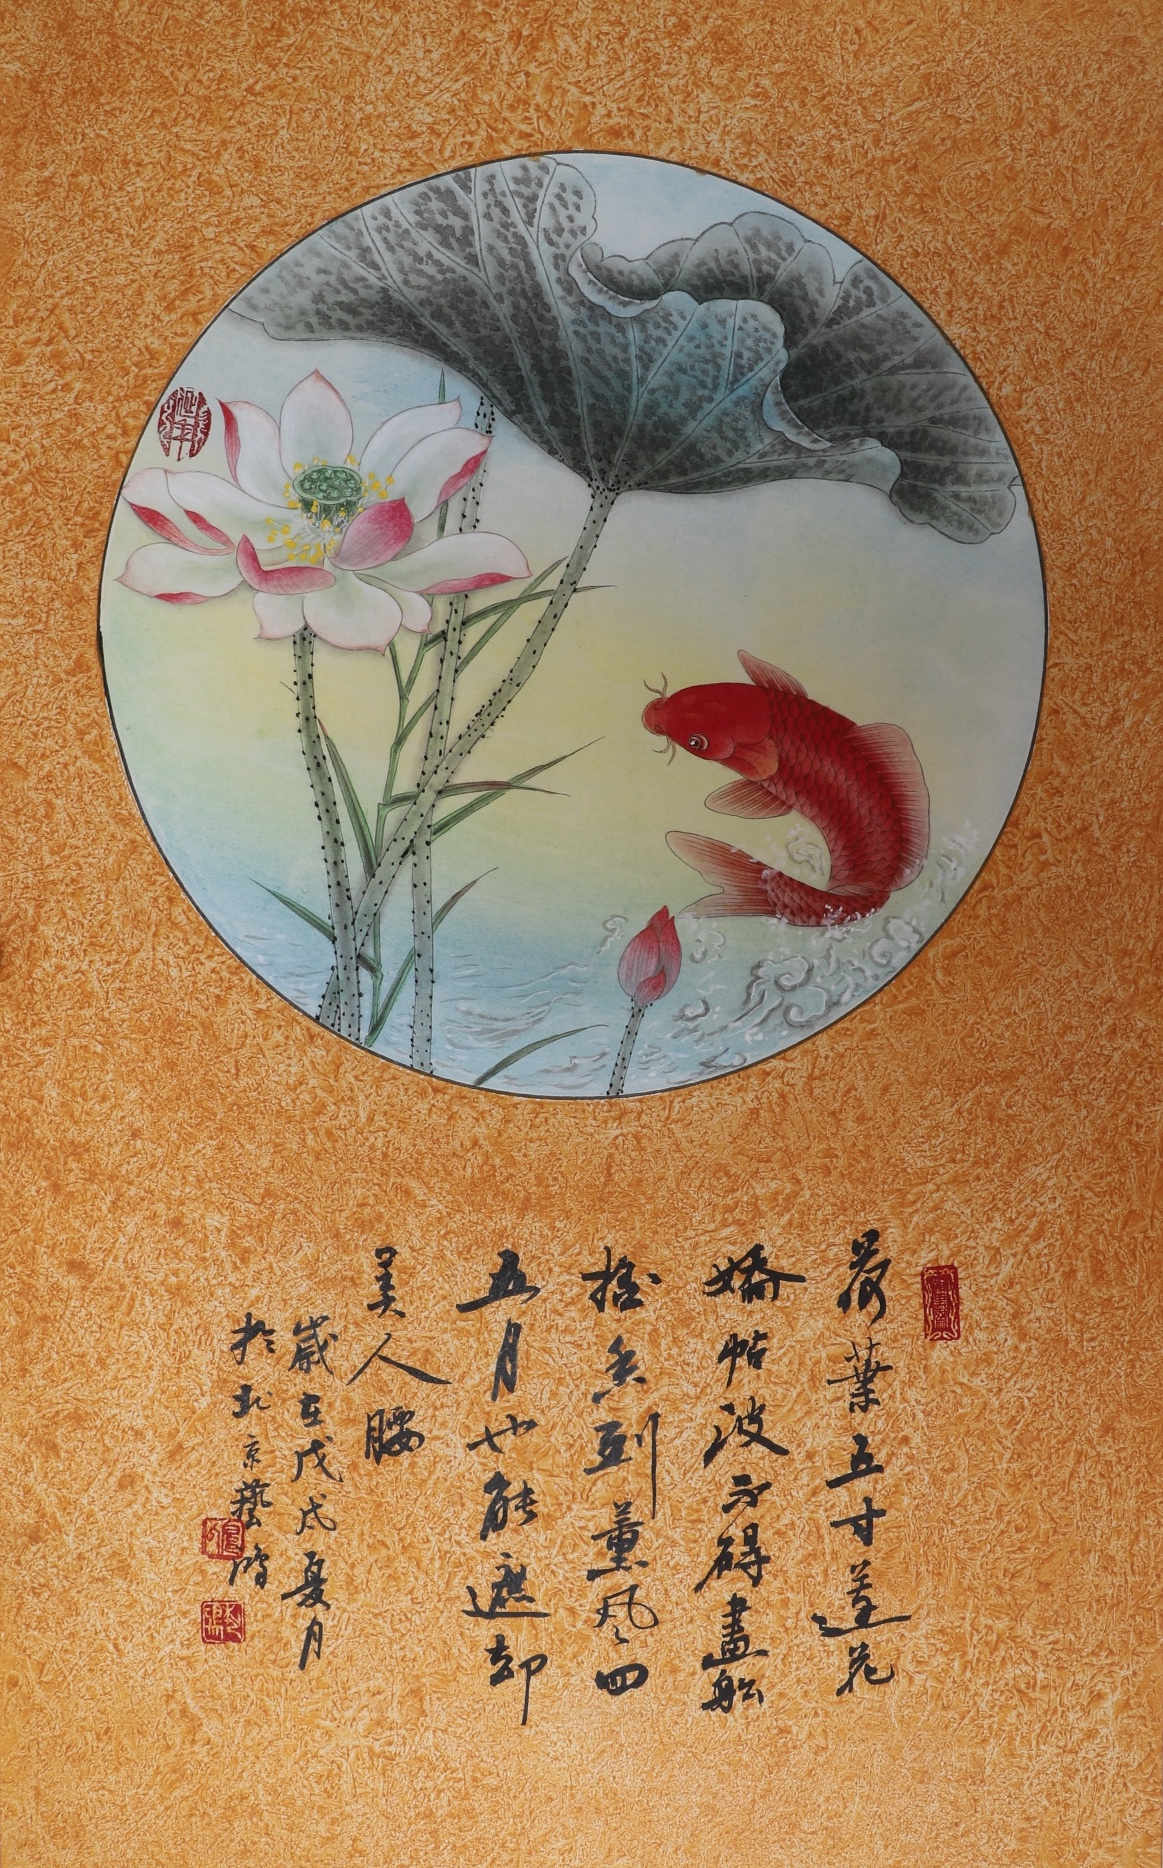 荷葉五寸蓮花
嬌帖波不碍畫船
摇至到薰風四
五月也能遮却
美人腰
歲在戊戌夏月
於北京藝鴻
延年